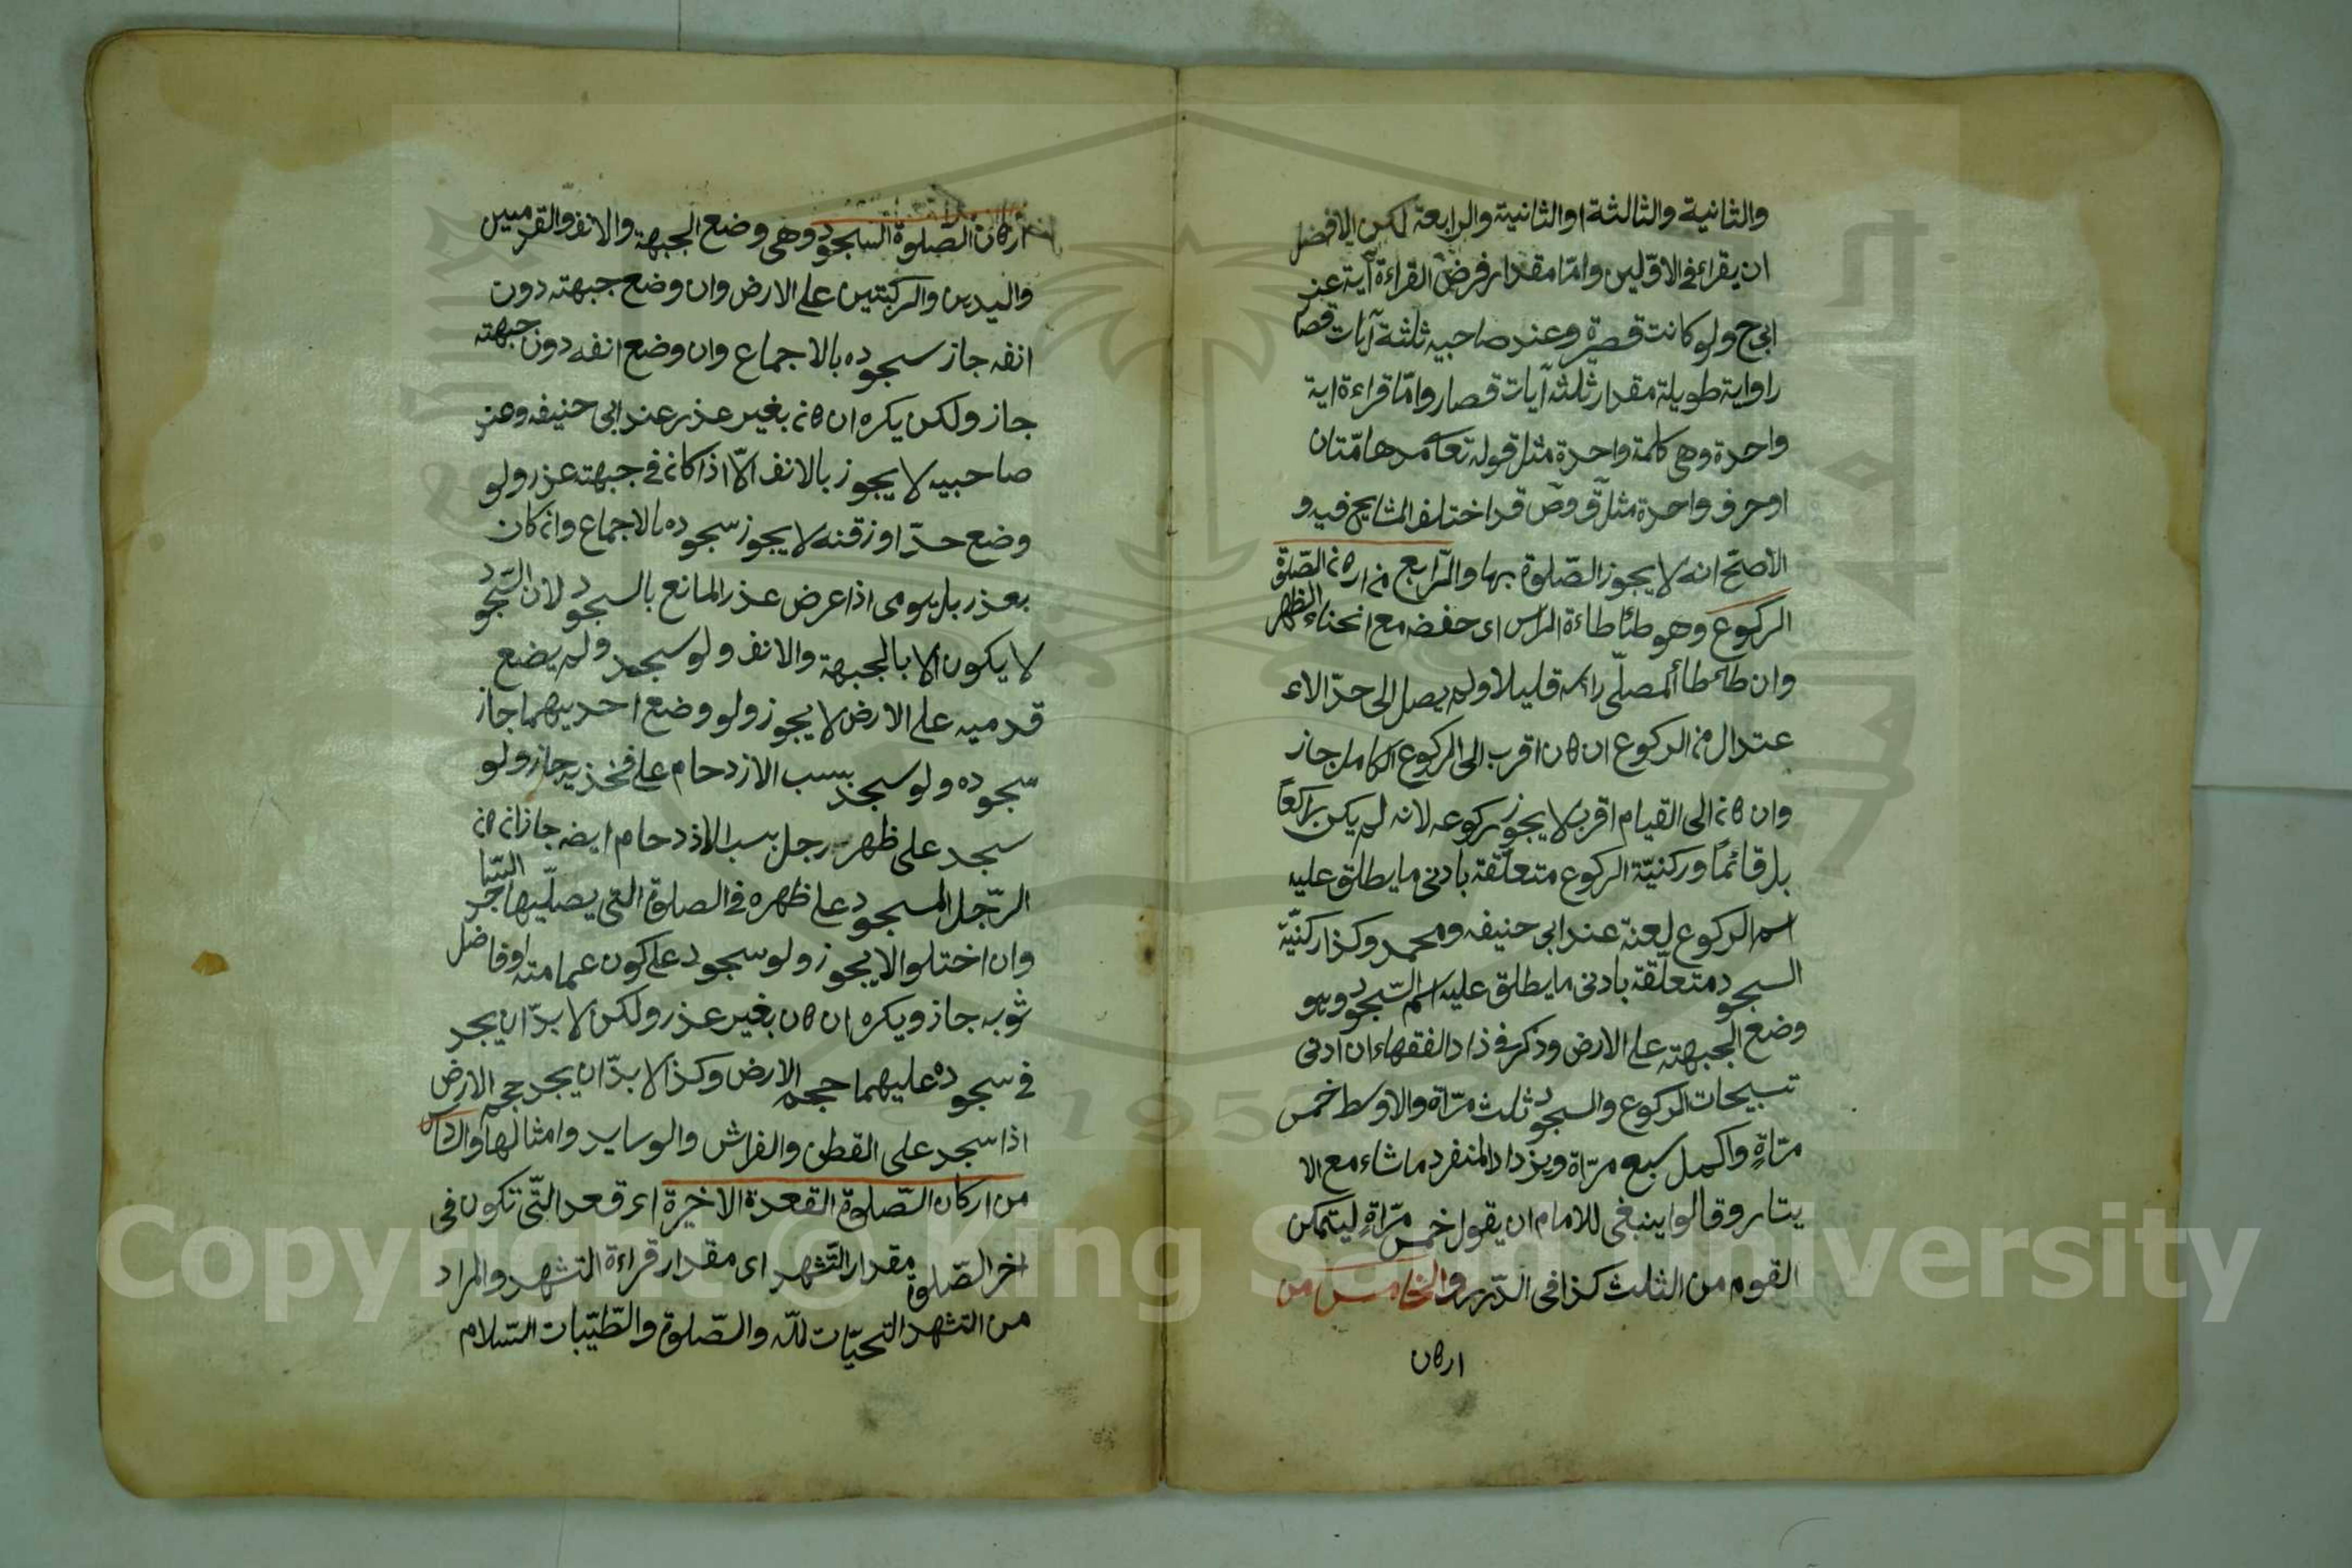 والثانية والثالثة او الثانية والرابعة لكن الافضل
ان يقراء فى الاوّلين وامّا مقدار فرض القراءة آية عند
ابى ح ولو كانت قصيرة وعند صاحبيه ثلثة آيات قصار
راواية طويلة مقدار ثلثه آيات قصار وامّا قراءة اية
واحدة وهى كلمة واحدة مثل قوله تعا مدهامّتان
اوحرف واحدة مثل ق وص قد اختلف المشايخ فيه و
الاصحّ انه لا يجوز الصّلوة بها والرّابع من اركان الصّلوة
الركوع وهو طئاطاءة الراس اى حفضه مع انحناء الظهر
وان طاطأ المصلّى راسه قليلا ولم يصل الى حدّ الاء
عتدال من الركوع ان كان اقرب الى الركوع الكامل جاز
وان كان الى القيام اقرب لا يجوز ركوعه لانه لم يكن راكعاً
بل قائماً وركنيّة الركوع متعلّقة بادنى ما يطلق عليه
اسم الركوع لعنة عند ابى حنيفه ومحمد وكذا ركنيّة
السجود متعلّقة بادنى ما يطلق عليه اسم السّجود وهو
وضع الجبهته على الارض وذكر فى ذاد الفقهاء ان ادنى
تسبيحات الركوع والسجود ثلث مرّاة والاوسط خمس
مرّاةٍ واكمل سبع مرّاة ويزداد المنفرد ما شاء مع الا
يتار وقالوا ينبغى للامام ان يقول خمس مرّاةٍ ليتمكن
القوم من الثلث كذا فى الدّرر والخامس من
اركان
اركان الصّلوة السجود وهى وضع الجبهة والانف والقدمين
واليدين والركبتين على الارض وان وضع جبهته دون
انفه جاز سجوده بالاجماع وان وضع انفه دون جبهته
جاز ولكن يكره ان كان بغير عذر عند ابى حنيفه وعند
صاحبيه لا يجوز بالانف الّا اذا كان فى جبهته عذر ولو
وضع حدّ اوزقنه لا يجوز سجوده بالاجماع وان كان
بعذر بل يومى اذا عرض عذر المانع بالسجود لان السّجود
لا يكون الا بالجبهة والانف ولو سجد ولم يضع
قدميه على الارض لا يجوز ولو وضع احديهما جاز
سجوده ولو سجد بسبب الازدحام على فخذيه جاز ولو
سجد على ظهر رجل بسبب الاذدحام ايضه جاز ان كان
الرّجل المسجود على ظهره فى الصلوة التى يصلّيها
وان اختلوا لا يجوز ولو سجود على كون عمامته اوفاضل
ثوبه جاز ويكره ان كان بغير عذر ولكن لا بدّ ان يجد
فى سجوده عليهما حجم الارض وكذا لا بدّ ان يجد حجم الارض
اذا سجد على القطن والفراش والوسايد وامثالها والسّادس
من اركان الصّلوة القعدة الاخيرة اى قعد التّى تكون فى
اخر الصّلوة مقدار التّشهد اى مقدار قراءة التشهد والمراد
من التشهد التحيّات للّه والصّلوة والطّيّبات السّلام
Copyright © King Saud University
1957